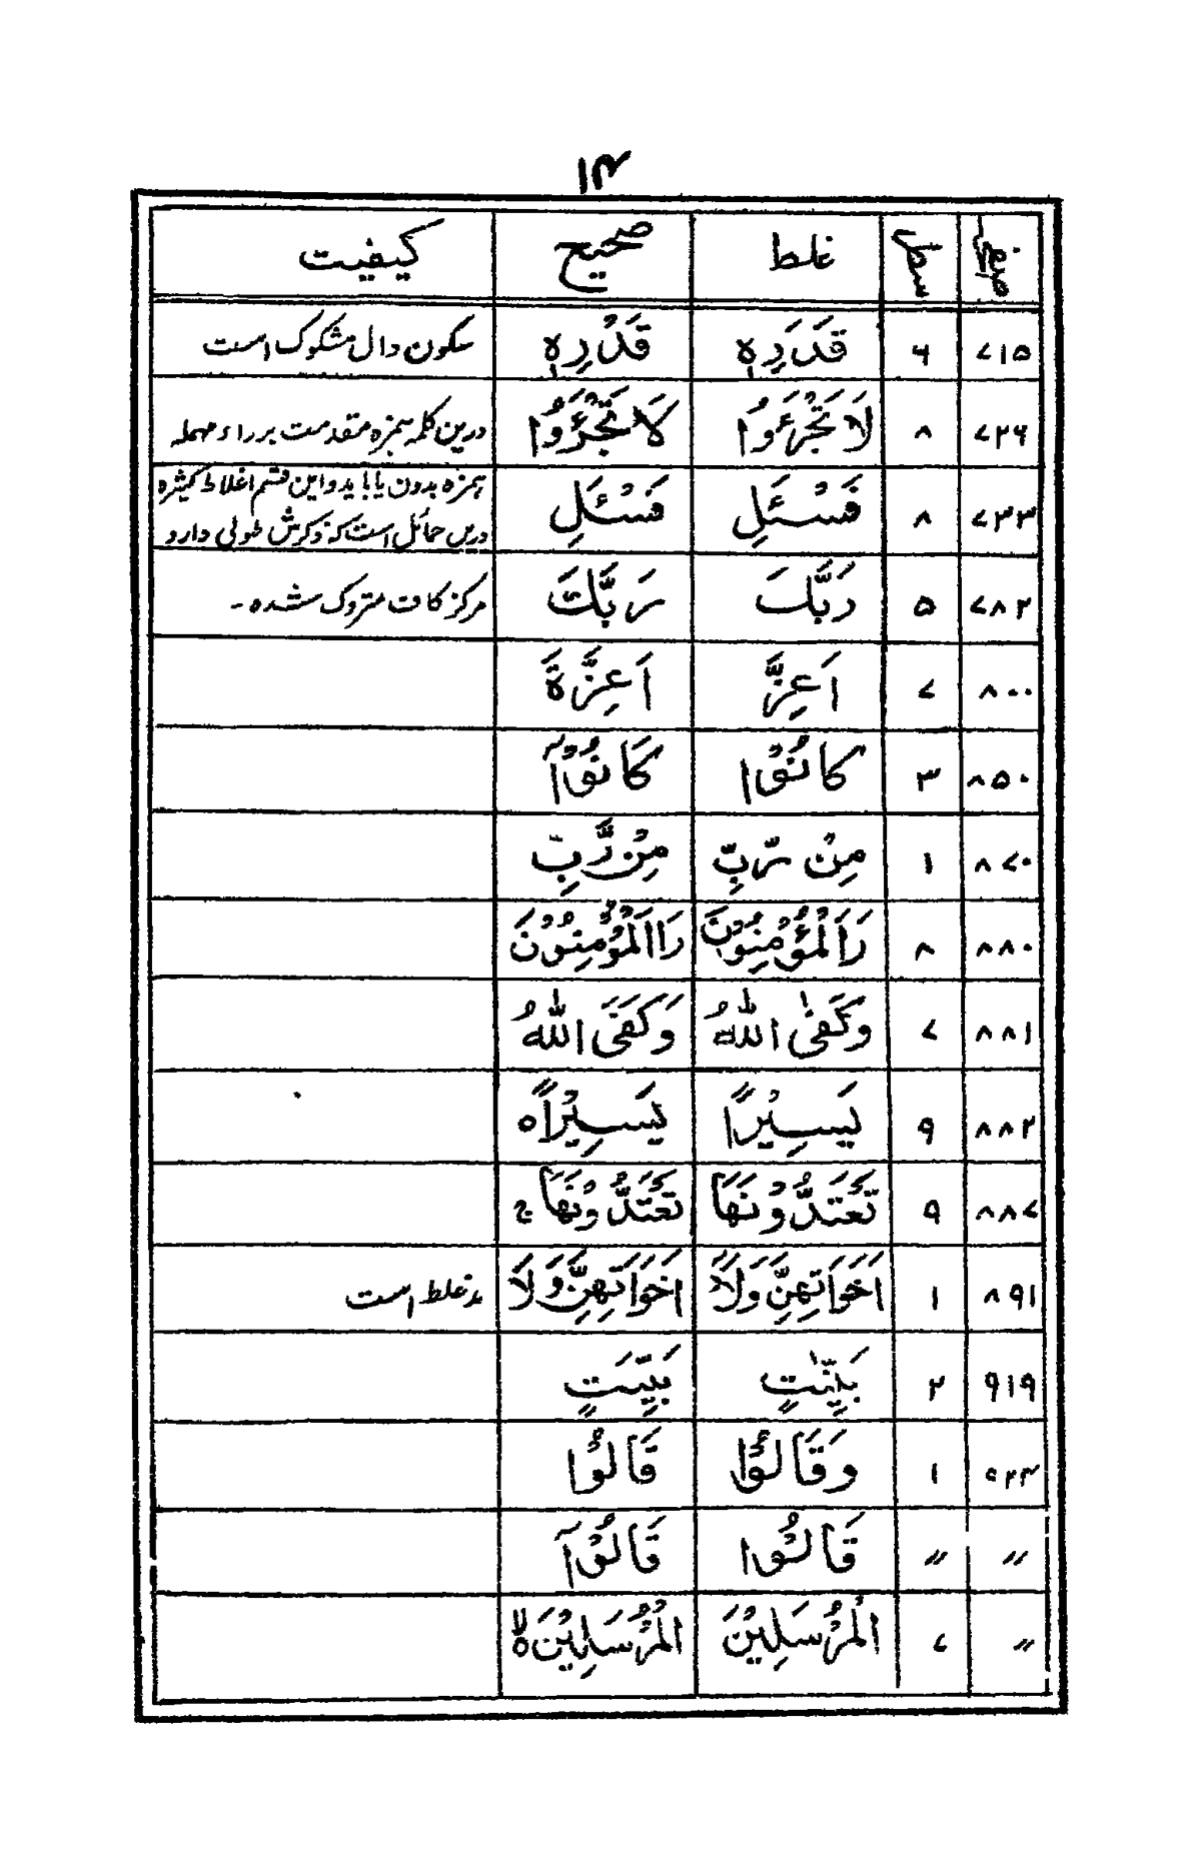 ۱۴
صفحه سطر غلط صحیح کیفیت
۷۱۵ ۶ قَدَدِهٖ قَدْرِهٖ سکون دال مشکوک است
۷۲۶ ۸ لَا تَجْرَءُوْا لَا تَجْـَٔرُوْا درین کلمہ ہمزہ مقدمست برراء مہملہ
۷۳۳ ۸ فَسْـئَلِ فَسْـَٔلِ ہمزہ بدون یا باید و این قسم اغلاط کثیرہ
درین حمائل است کہ ذکرش طولی دارد
۷۸۲ ۵ رَبَّکَ رَبَّكَ مرکز کاف متروک شدہ -
۸۰۰ ۷ اَعِزَّ اَعِزَّةَ
۸۵۰ ۳ کَانُوْا کَانُوْۤا
۸۷۰ ۱ مِنْ رَّبِّ مِنْ رَّبِّ
۸۸۰ ۸ رَاَلْمُؤْمِنُوْنَ رَاالْمُؤْمِنُوْنَ
۸۸۱ ۷ وَکَفٰی اللّٰهُ وَکَفَی اللّٰهُ
۸۸۲ ۹ یَسِیْرًا یَسِیْرًا ہ
۸۸۷ ۹ تَعْتَدُّوْنَهَا تَعْتَدُّوْنَهَا ج
۸۹۱ ۱ اَخَوَاتِهِنَّ وَلَآ اَخَوَاتِهِنَّ وَلَا مد غلط است
۹۱۹ ۲ بَیِّنٰتٍ بَیِّنَتٍ
۹۲۳ ۱ وَقَالُوْۤا قَالُوْا
〃 〃 قَالُوْا قَالُوْۤا
〃 ۷ الْمُرْسَلِیْنَ الْمُرْسَلِیْنَ ۙ